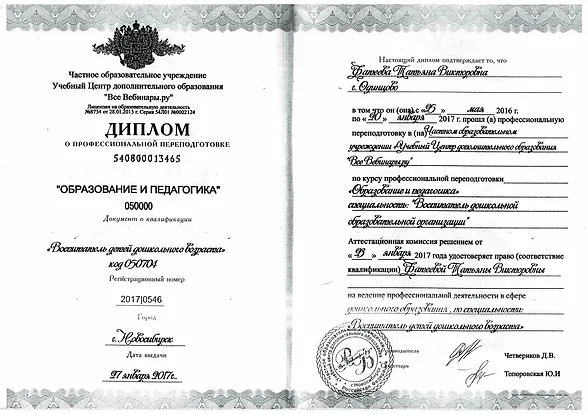 Частное образовательное учреждение
Учебный Центр дополнительного образования
"Все Вебинары.ру"
Лицензия на образовательную деятельность
№8754 от 28.01.2015 г. Серия 54Л01 №0002124
ДИПЛОМ
О ПРОФЕССИОНАЛЬНОЙ ПЕРЕПОДГОТОВКЕ
540800013465
"ОБРАЗОВАНИЕ И ПЕДАГОГИКА"
050000
Документ о квалификации
«Воспитатель детей дошкольного возраста»
код 050704
Регистрационный номер
2017|0546
Город
г. Новосибирск
Дата выдачи
27 января 2017г.
Настоящий диплом подтверждает то, что
Фатеева Татьяна Викторовна
г. Одинцово
в том что он (она) с «25» мая 2016 г.
по «20» января 2017 г. прошла (а) профессиональную
переподготовку в (на) Частном образовательном
учреждении «Учебный Центр дополнительного образования
"Все Вебинары.ру"
по курсу профессиональной переподготовки
«Образование и педагогика»
специальность: "Воспитатель дошкольной
образовательной организации"
Аттестационная комиссия решением от
«23» января 2017 года удостоверяет право (соответствие
квалификации) Фатеевой Татьяны Викторовны
на ведение профессиональной деятельности в сфере
дошкольного образования, по специальности:
«Воспитатель детей дошкольного возраста»
Руководитель
Четвериков Д.В.
Секретарь
Топоровская Ю.И